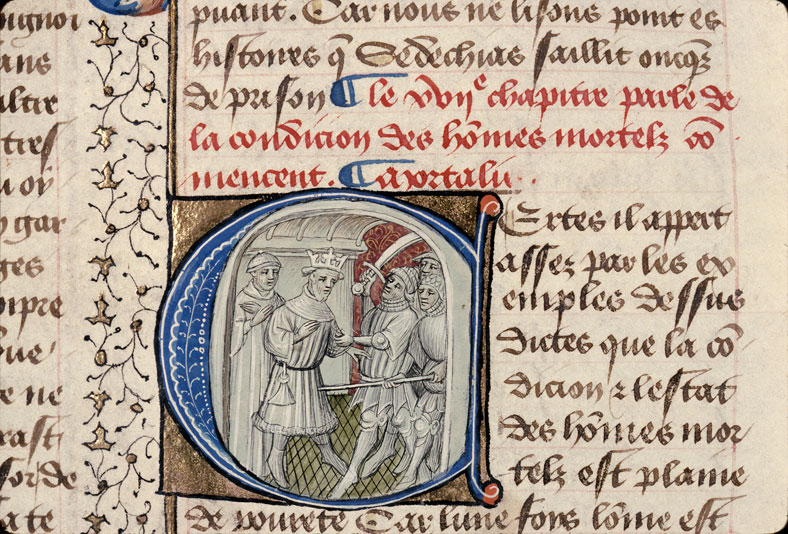 uignor
ans
altre
tres
u oy
y gar
ges
mpre
que
e ne
rast
sorde
ate
puant. Car nous ne lisons point es
histoires q̄ Sedechias saillit oncq̄s
de prison ¶ le xvııe chapitre parle de
la condicion des hōmes mortelz cō
mencent. Ca portalu.
Certes il appert
assez par les ex
emples dessus
dictes que la cō
dicion ⁊ lestat
des hōmes mor
telz est plaine
de pourete Car lune foys lōme est